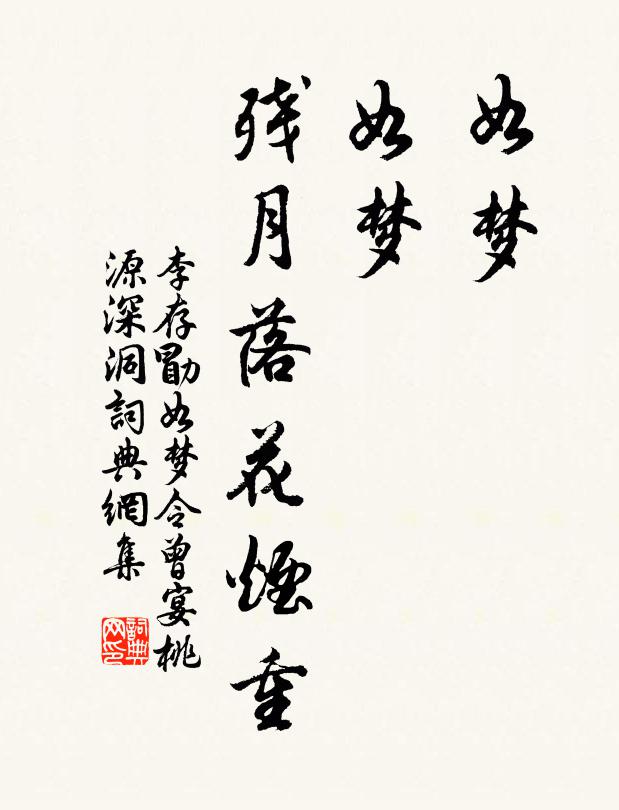 如梦
如梦
残月落花煙重
李存勖如梦令曾宴桃
源深洞詞典網集
詞典
网印